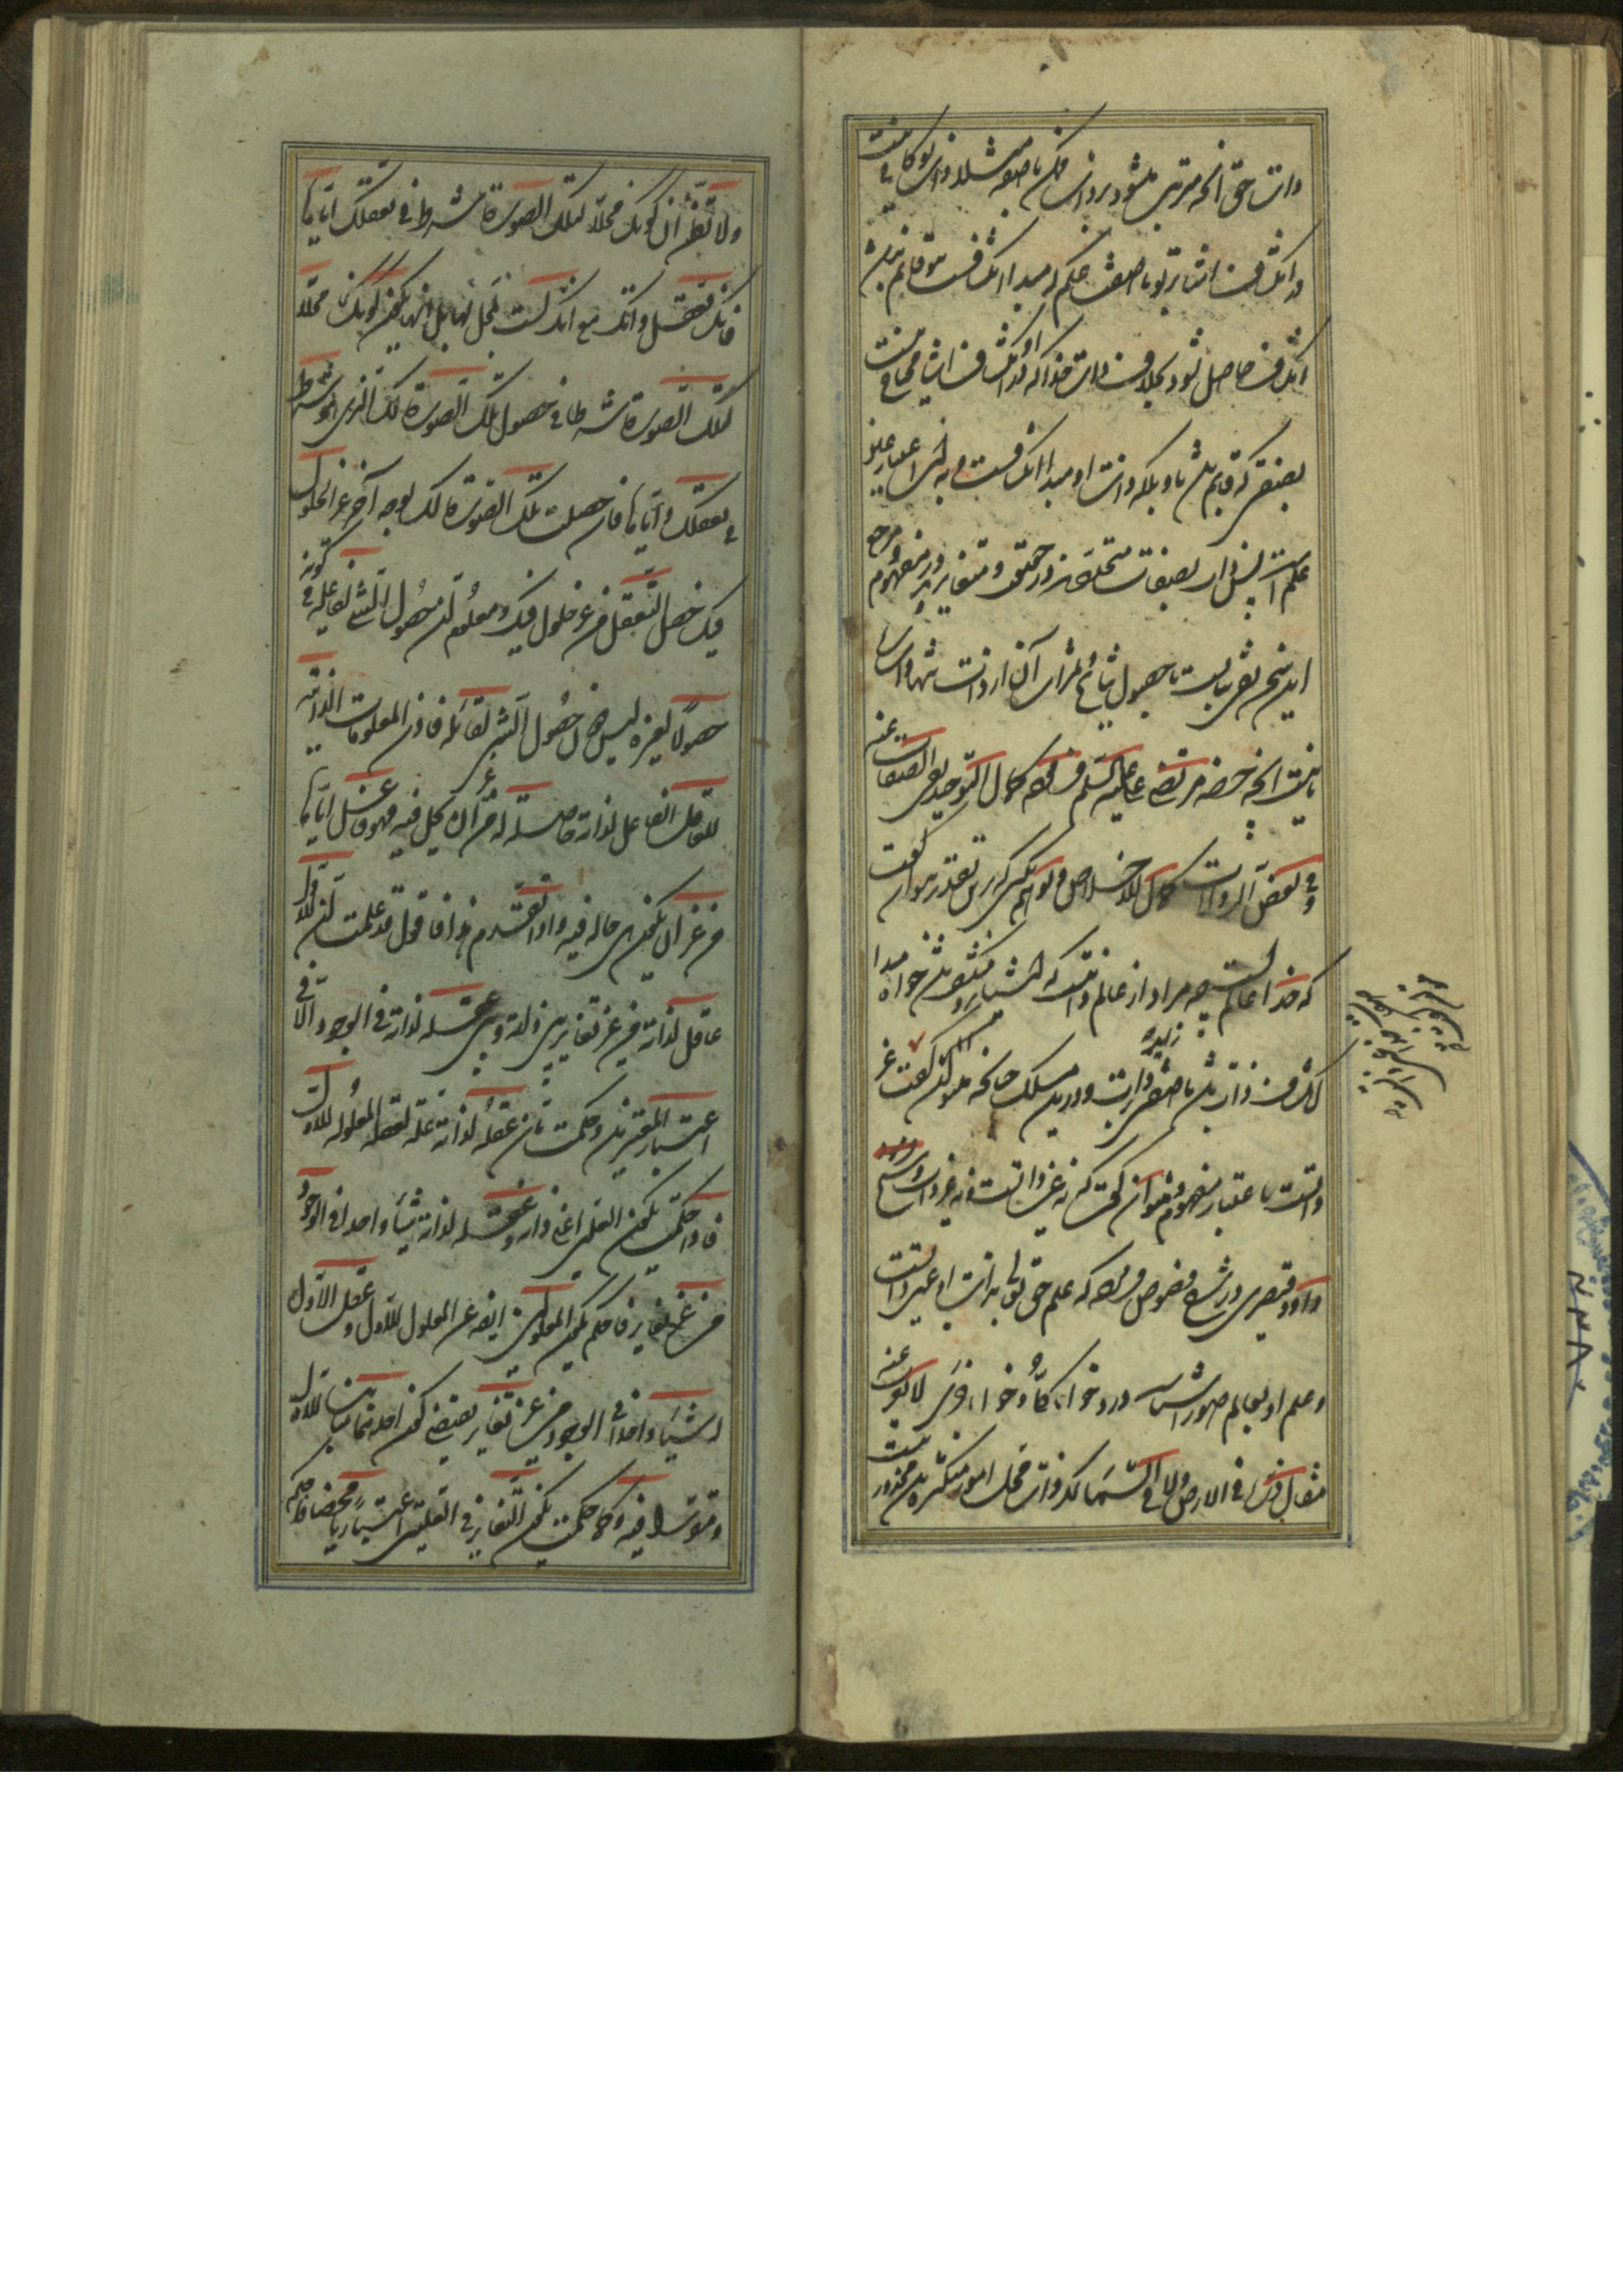 ذات حق آنچه مترتب میشود بر ذات ممکن با صفت مثلا ذات تو کافی نیست
در انکشاف اشیا بر تو با صفت علم که مبدا انکشافست بتو قایم نباشد
انکشاف حاصل نشود بخلاف ذات خدا که او در انکشاف اشیا محتاج نیست
بصفتی که قایم باشد باو بلکه ذات او مبدا انکشافست و به این اعتبار عین
علم است پس ذات بصفات متحدند در حقیقت و متغایرند در مفهوم و مرجع
این سخن نفی صفاتست با حصول نتایج و ثمرات آن از ذات تنها و اساس
اینست آنچه حضرت مرتضی علی علیه السلم فرموده کمال التوحید نفی الصفات عنه
و فی بعض الروایات کمال الاخلاص و توهم نکنی که برین تقدیر نتوان گفت
که خدا عالمست چه مراد از عالم ذاتیست که اشیا برو منکشف باشد خواه مبدا
انکشاف ذات باشد یا صفتی زایده بر ذات و درین مسلک چنانچه میتوان گفت عین
ذاتست باعتبار مفهوم میتوان گفت که نه عین ذاتست و نه غیر ذات و شیخ
داود قیصری در شرح فصوص فرموده که علم حق تعالی بذات او عین ذاتست
و علم او بعالم صور اشیاست درو خواه کلی و خواه جزئی لا یعزب عنه
مثقال ذرة فی الارض ولا فی السماء که ذات محل امور متکثره باشد محذور نیست
ولا تظنن ان کونک محلا لتلک الصورة شرط فی تعقلک ایاها
فانک تعقل ذاتک مع انک لست بمحل لها بل انما یکون کونک محلا
لتلک الصورة شرطا فی حصول تلک الصورة لک الذی هو شرط
فی تعقلک ایاها فان حصلت تلک الصورة لک بوجه آخر غیر الحلول
فیک حصل التعقل من غیر حلول فیک و معلوم ان حصول الشی لفاعله فی کونه
حصولا لغیره لیس دون حصول الشی لقابله فاذن المعلولات الذاتیة
للعاقل الفاعل لذاته حاصلة له من غیر ان یحل فیه فهو عاقل ایاها
من غیر ان یکون هی حالة فیه و اذا تقدم هذا فاقول قد علمت ان الاول
عاقل لذاته من غیر تغایر بین ذاته و بین عقله لذاته فی الوجود الا فی
اعتبار المعتبرین و حکمت بان عقله لذاته علة لعقله المعلوله الاول
فاذا حکمت بکون العلتین اعنی ذاته و عقله لذاته شیئا واحدا فی الوجود
من غیر تغایر فاحکم بکون المعلولین ایضا عن المعلول الاول و عقل الاول
له شیئا واحدا فی الوجود من غیر تغایر یقتضی کون احدهما مباینا للاول
و متقررا فیه و کما حکمت بکون التغایر فی العلتین اعتباریا محضا فاحکم